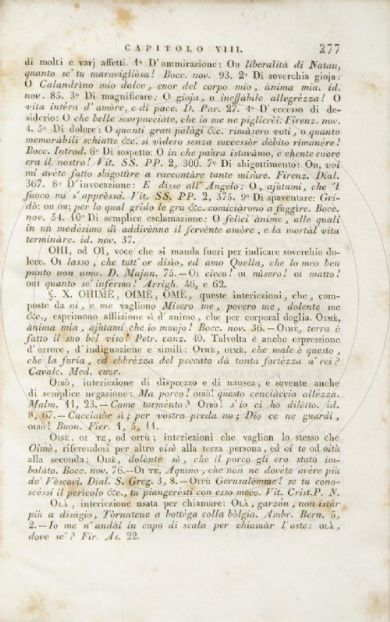 CAPITOLO VIII. 277
di molti e varj affetti. 1º D'ammirazione: Oh liberalità di Natan,
quanto se' tu maravigliòsa! Bocc. nov. 93. 2º Di soverchia gioja:
O Calandrino mio dolce, cuor del corpo mio, ànima mia. id.
nov. 85. 3º Di magnificare: O gioja, o ineffabile allegrèzza! O
vita intèra d'amòre, e di pace. D. Par. 27. 4º D'eccesso di de-
siderio: O che belle scarpacciate, che io me ne piglierèi! Firenz. nov.
4. 5º Di dolore: O quanti gran palàgi &c. rimàsero voti, o quante
memoràbili schiatte &c. si videro senza successòr dèbito rimanére!
Bocc. Introd. 6º Di sospetto: O in che paùra istavàmo, e chente cuore
era il nostro! Vit. SS. PP. 2, 300. 7º Di sbigottimento: Oh, voi
mi avete fatto sbigottire a raccontàre tante misùre. Firenz. Dial.
367. 8º D'invocazione: E disse all'Angelo: O, ajùtami, che 'l
fuoco mi s'apprèssa. Vit. SS. PP. 2, 375. 9º Di spaventare: Gri-
dò: oh oh: per lo qual grido le gru &c. cominciàrono a fuggire. Bocc.
nov. 54. 10º Di semplice esclamazione: O felici ànime, alle quali
in un medèsimo dì addivènne il fervènte amòre, e la mortal vita
terminàre. id. nov. 37.
OHI, od OI, voce che si manda fuori per indicare soverchio do-
lore. Oi lasso, che tutt'or disìo, ed amo Quella, che io meo ben
punto non ama. D. Majan. 75. — Oi cieco! oi mìsero! oi matto!
ohi quanto se' infermo! Arrigh. 46, e 62.
§. X. OHIMÈ, OIMÈ, OMÈ, queste interiezioni, che, com-
poste da oi, e me vagliono Misero me, povero me, dolente me
&c., esprimono afflizione sì d'animo, che per corporal doglia. Oimè,
ànima mia, ajùtami che io muojo! Bocc. nov. 36. — Oimè, terra è
fatto il suo bel viso! Petr. canz. 40. Talvolta è anche espressione
d'orrore, d'indignazione e simili: Oimè, oimè, che male è questo,
che la furia, ed ebbrèzza del peccato dà tanta fortèzza a' rei?
Cavalc. Med. cuor.
Oibò, interiezione di dispezzo e di nausea, e sovente anche
di semplice negazione: Ma porco! oibò! questo cenciàccio allèzza.
Malm. 11, 23. — Come tormento? Oibò! s'io ci ho diletto. id.
8, 67. — Cacciatòr sì; per vostra preda no; Dio ce ne guardi,
oibò! Buon. Fier. 4, 5, 11.
Oisè, oi te, od ohtù; interiezioni che vaglion lo stesso che
Oimè, riferendosi per altro oisè alla terza persona, ed oi te od oitù
alla seconda; Oisè, dolente sè, che il porco gli era stato im-
bolato. Bocc. nov. 76. — Oi te, Aquino, che non ne dovete avère più
de' Vèscovi. Dial. S. Greg. 3, 8. — Ohtù Gerusalèmme! se tu cono-
scèssi il pericolo &c., tu piangerèsti con esso meco. Vit. Crist. P. N.
Olà, interiezione usata per chiamare: Olà, garzòn, non istàr
più a disàgio, Tòrnatene a bottèga colla bòlgia. Ambr. Bern. 5,
2. — Io me n'andài in capo di scala per chiamàr l'oste: olà,
dove se'? Fir. As. 22.